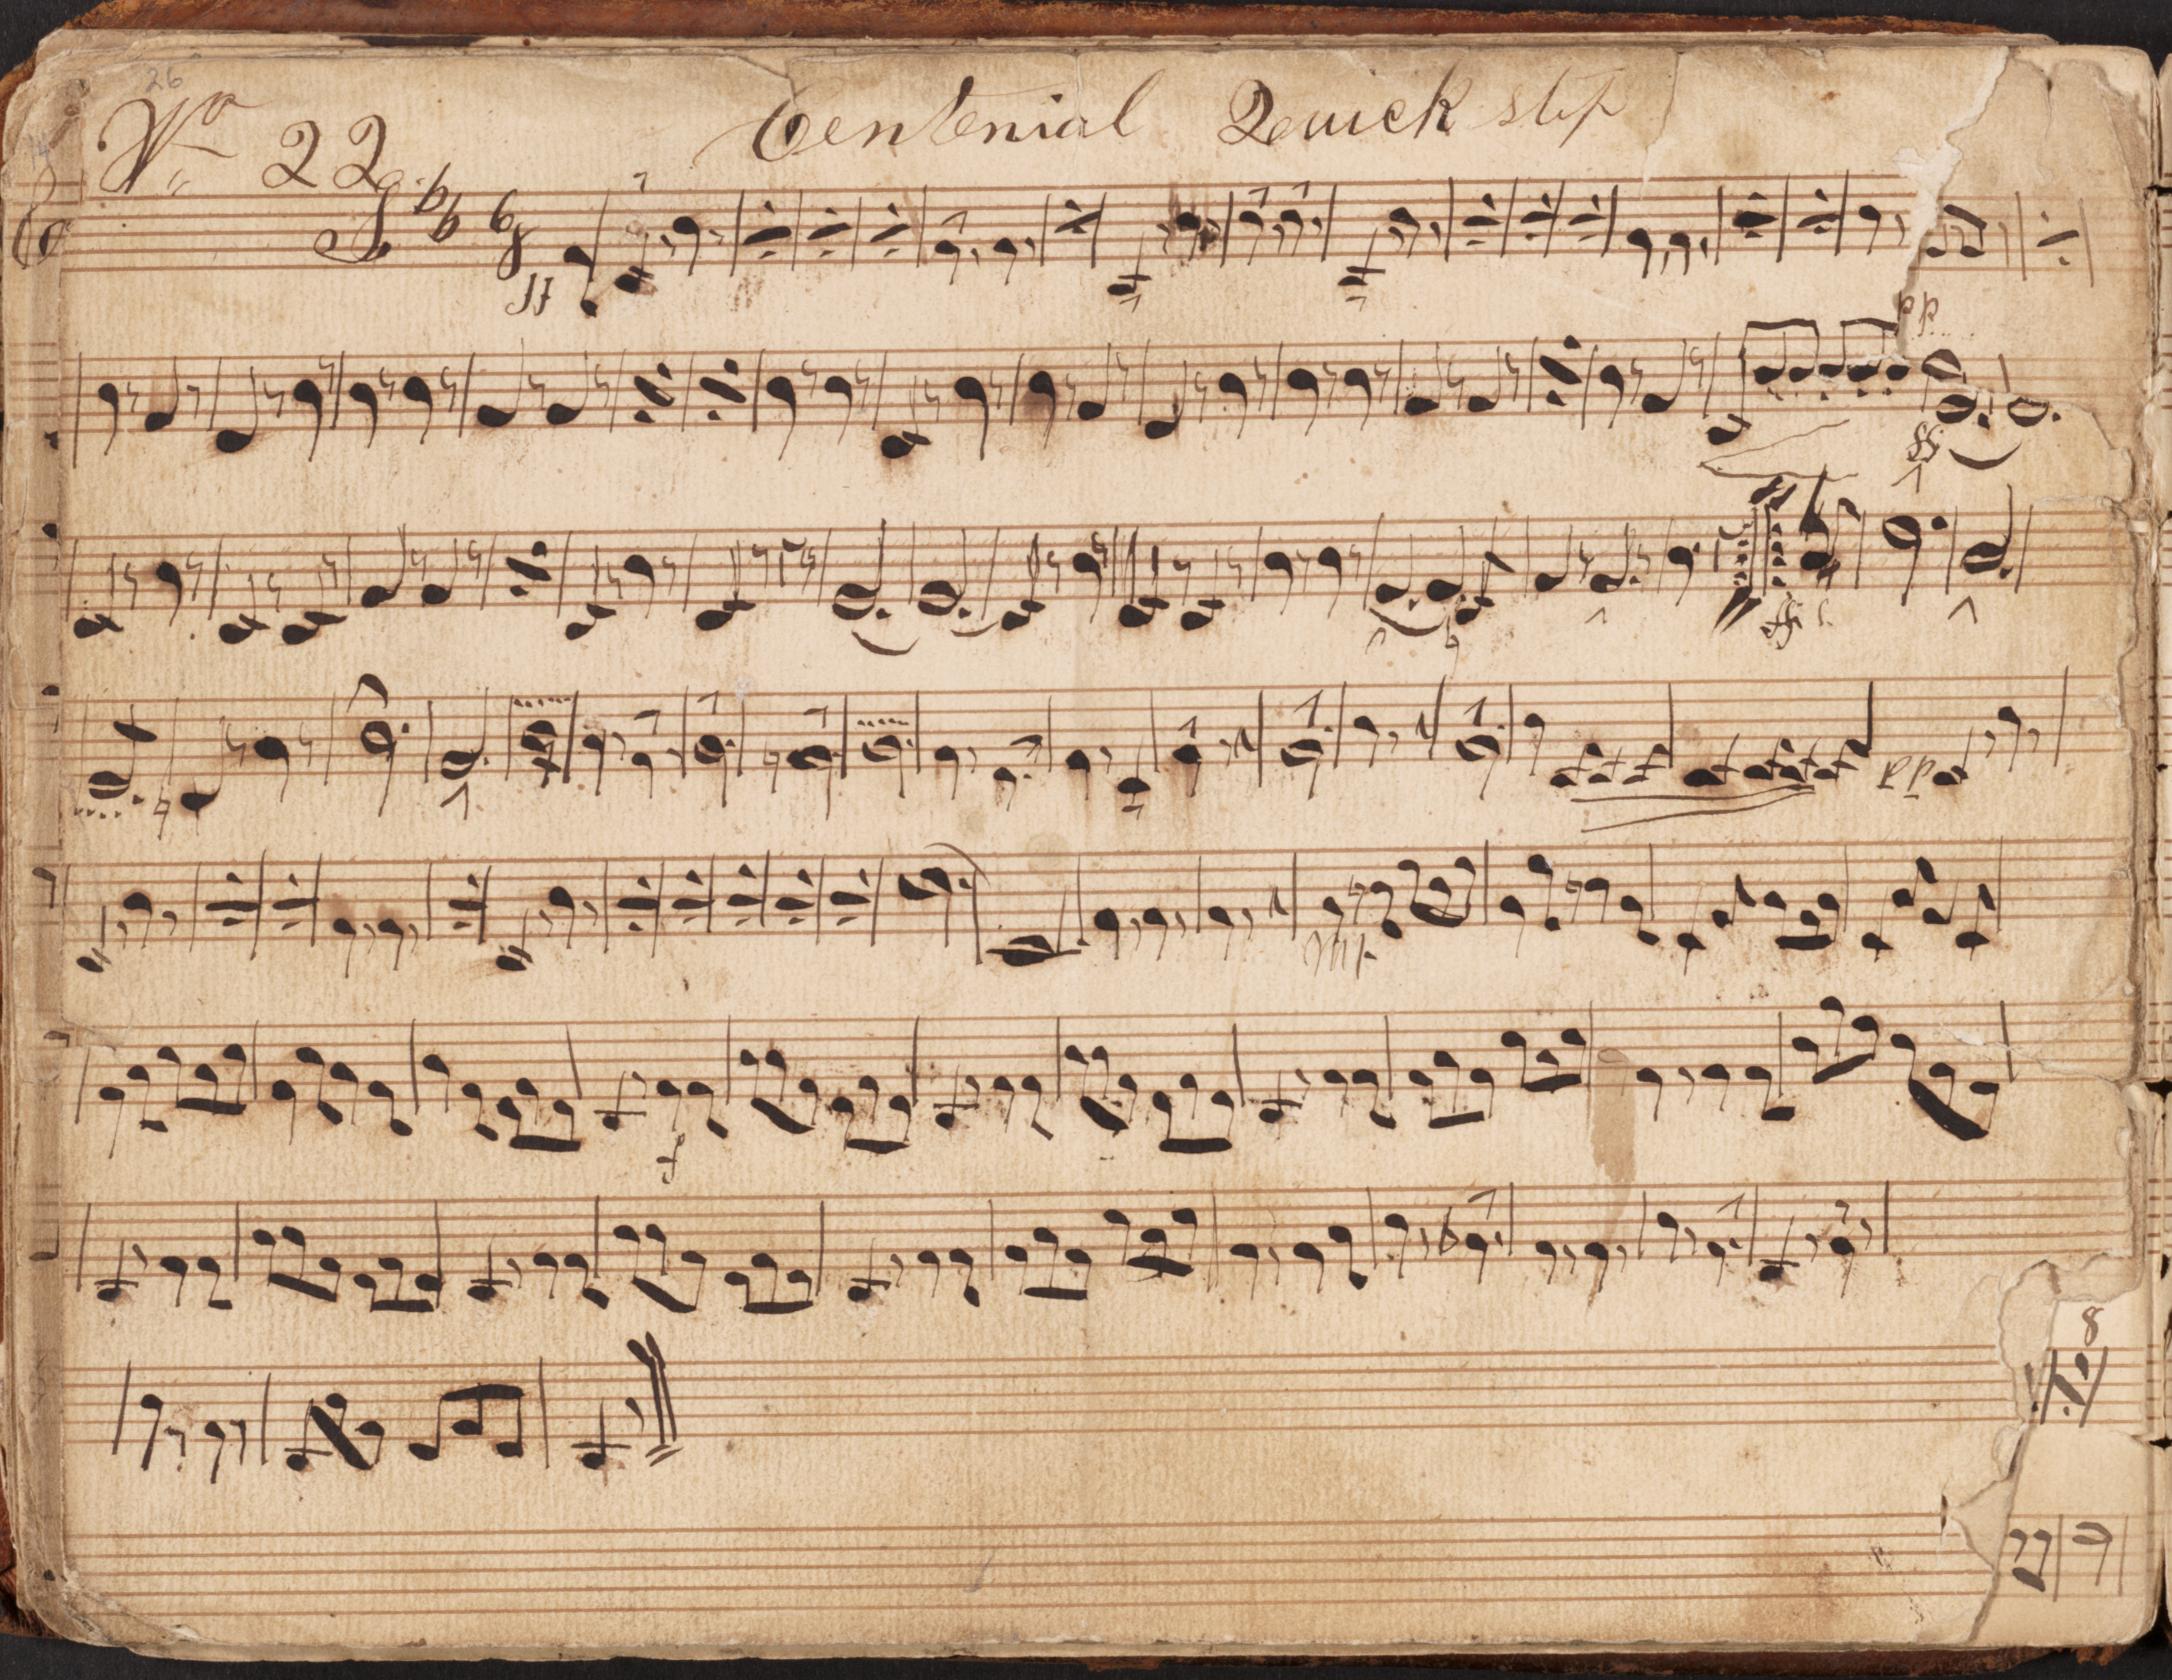 26
No 22 Centenial Quick step
6/8
ff
pp
ff
ff
pp
mf
f
8